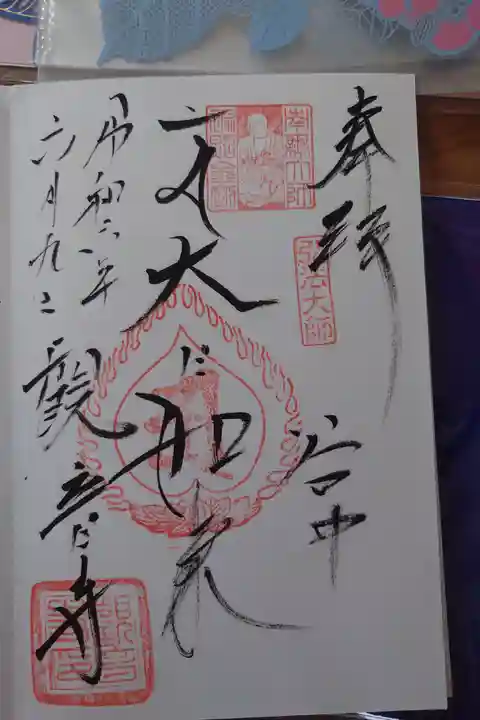 奉拝
弘法大師
谷中
大日如来
令和六年
六月九日
観音寺